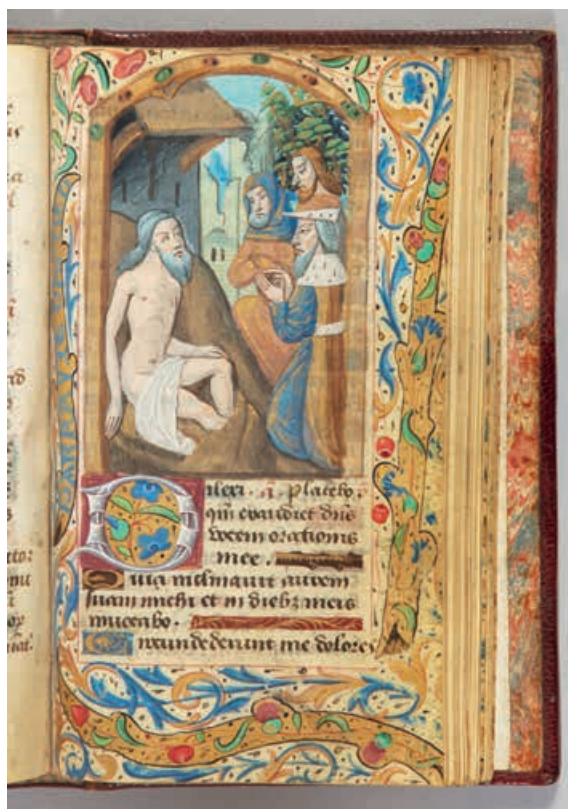 Dilexi. a. Placebo.
qm̄ exaudiet dn̄s
vocem orationis
mee.
Quia inclinauit aurem
suam michi et in dieb; meis
inuocabo.
Circundederunt me dolores